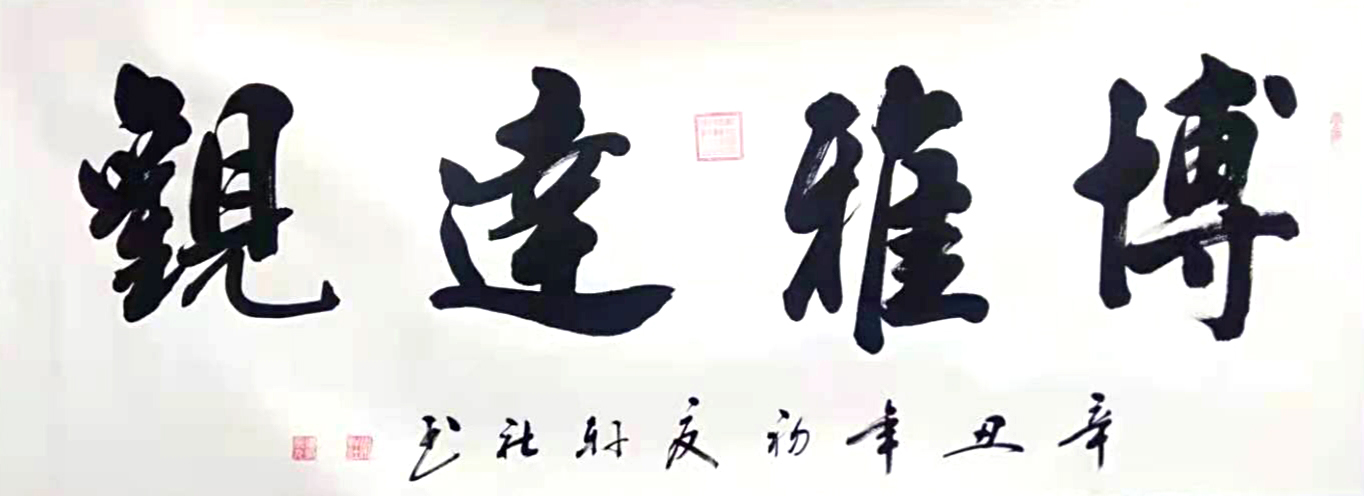 博雅達觀
辛丑年初夏軒社書